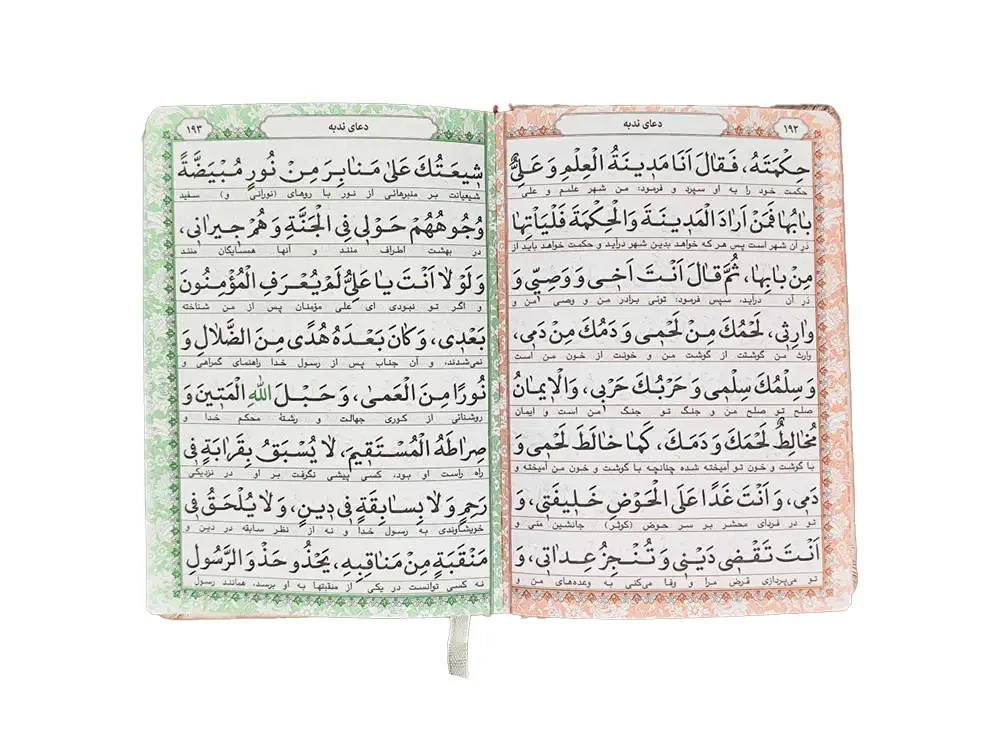 ۱۹۲
دعای ندبه
حِكْمَتَهُ، فَقالَ اَنَا مَدینَةُ الْعِلْمِ وَ عَلِیٌّ
حکمت خود را به او سپرد و فرمود: من شهر علمم و علی
بابُها فَمَنْ اَرادَ الْمَدینَةَ وَالْحِكْمَةَ فَلْیَأْتِها
در آن شهر است پس هر که خواهد بدین شهر درآید و حکمت خواهد باید از
مِنْ بابِها، ثُمَّ قالَ اَنْتَ اَخی وَ وَصِیّی وَ
در آن درآید، سپس فرمود: توئی برادر من و وصی من و
وارِثی، لَحْمُكَ مِنْ لَحْمی وَ دَمُكَ مِنْ دَمی،
وارث من گوشتت از گوشت من و خونت از خون من است
وَ سِلْمُكَ سِلْمی وَ حَرْبُكَ حَرْبی، وَالْایمانُ
صلح تو صلح من و جنگ تو جنگ من است و ایمان
مُخالِطٌ لَحْمَكَ وَ دَمَكَ، كَما خالَطَ لَحْمی وَ
با گوشت و خون تو آمیخته شده چنانچه با گوشت و خون من آمیخته و
دَمی، وَ اَنْتَ غَدًا عَلَی الْحَوْضِ خَلیفَتی، وَ
تو در فردای محشر بر سر حوض (کوثر) جانشین منی و
اَنْتَ تَقْضی دَیْنی وَ تُنْجِزُ عِداتی، وَ
تو می‌پردازی قرض مرا و وفا می‌کنی به وعده‌های من و
۱۹۳
دعای ندبه
شیعَتُكَ عَلی مَنابِرَ مِنْ نُورٍ مُبْیَضَّةً
شیعیانت بر منبرهائی از نور با روهای (نورانی و) سفید
وُجُوهُهُمْ حَوْلی فِی الْجَنَّةِ وَ هُمْ جیرانی،
در بهشت اطراف منند و آنها همسایگان منند
وَ لَوْ لا اَنْتَ یا عَلِیُّ لَمْ یُعْرَفِ الْمُؤْمِنُونَ
و اگر تو نبودی ای علی مؤمنان پس از من شناخته
بَعْدی، وَ كانَ بَعْدَهُ هُدًی مِنَ الضَّلالِ وَ
نمی‌شدند، و آن جناب پس از رسول خدا راهنمای گمراهی و
نُورًا مِنَ الْعَمی، وَ حَبْلَ اللهِ الْمَتینَ وَ
روشنائی از کوری جهالت و رشتهٔ محکم خدا و
صِراطَهُ الْمُسْتَقیمَ، لا یُسْبَقُ بِقَرابَةٍ فی
راه راست او بود، کسی پیشی نگرفت بر او در نزدیکی
رَحِمٍ وَ لا بِسابِقَةٍ فی دینٍ، وَ لا یُلْحَقُ فی
خویشاوندی به رسول خدا و نه از نظر سابقه در دین و
مَنْقَبَةٍ مِنْ مَناقِبِهِ، یَحْذُو حَذْوَ الرَّسُولِ
نه کسی توانست در یکی از منقبتها به او برسد، همانند رسول